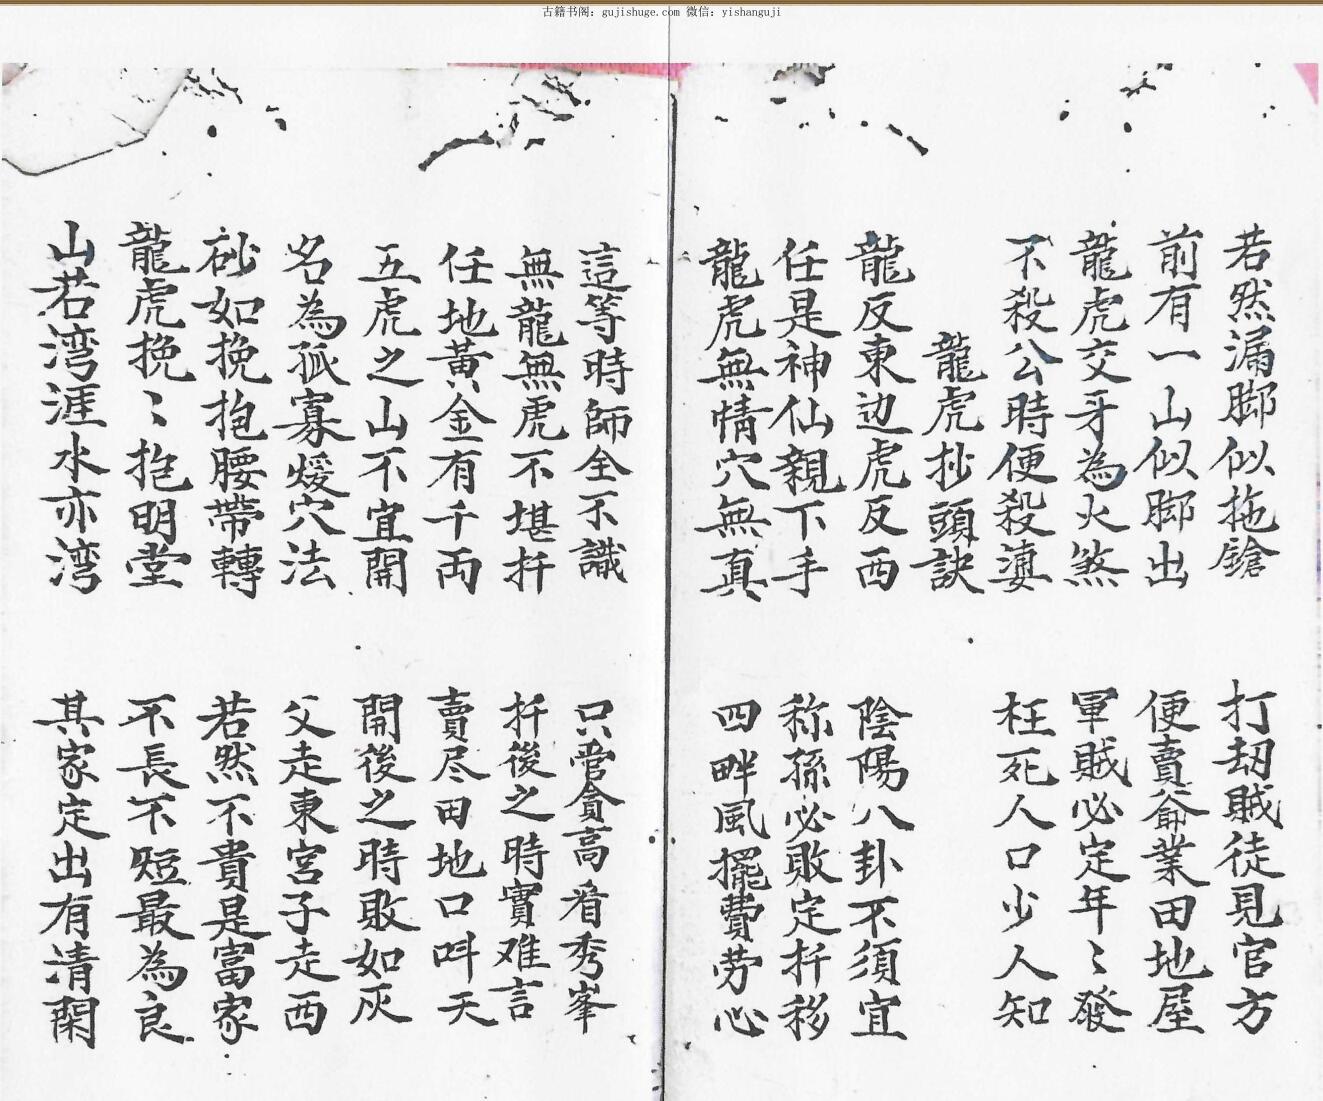 古籍书阁：gujishuge.com 微信：yishanguji
若然漏脚似拖鎗 打刼賊徒見官方
前有一山似脚出 便賣爺業田地屋
龍虎交牙為火煞 軍賊必定年〻發
不殺公時便殺凄 枉死人口少人知
龍虎抄頭訣
龍反東边虎反西 陰陽八卦不須宜
任是神仙親下手 称孫必敗定扦移
龍虎無情穴無真 四畔風擺費劳心
這等時師全不識 只管貪高看秀峯
無龍無虎不堪扦 扦後之時實难言
任地黃金有千両 賣尽田地口叫天
五虎之山不宜開 開後之時敗如灰
名為孤寡煖穴法 父走東宮子走西
砂如挽抱腰帶轉 若然不貴是富家
龍虎挽〻抱明堂 不長不短最為良
山若湾涯水亦湾 其家定出有清閑